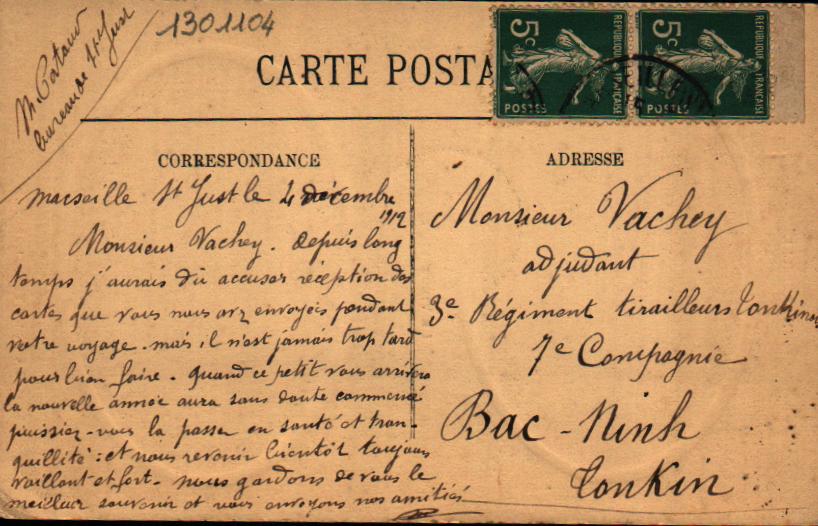 1301104
M. Pataud
bureau de St Just
CARTE POSTA
5c
POSTES
REPUBLIQUE FRANÇAISE
5c
POSTES
REPUBLIQUE FRANÇAISE
CORRESPONDANCE
Marseille St Just le 4 décembre
1912
Monsieur Vachey. depuis long
temps j'aurais dû accuser réception des
cartes que vous nous avez envoyés pendant
votre voyage. mais il n'est jamais trop tard
pour bien faire. quand ce petit vous arrivera
la nouvelle année aura sans doute commencé
puissiez-vous la passer en santé et tran-
quillité: et nous revenir bientôt toujours
vaillant et fort. nous gardons de vous le
meilleur souvenir et vous envoyons nos amitiés
ADRESSE
Monsieur Vachey
adjudant
3e Régiment tirailleurs Tonkinois
7e Compagnie
Bac-Ninh
Tonkin